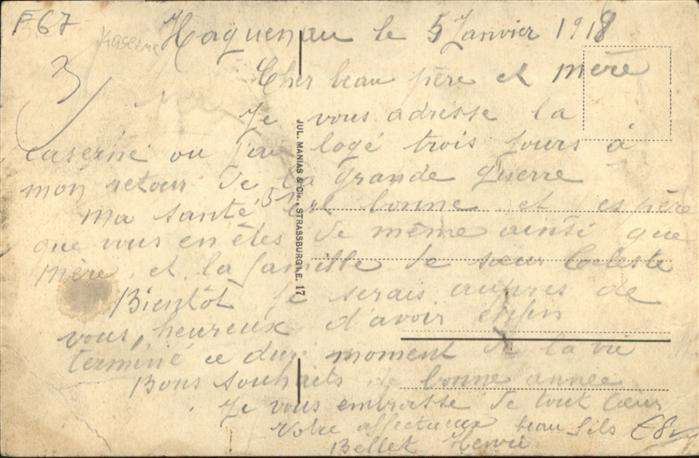 F67
Kaserne
Haguenau le 5 Janvier 1918
3
Cher beau père et mère
Je vous adresse la
caserne ou j'ai logé trois jours à
mon retour de la grande guerre
Ma santé est bonne et espère
que vous en êtes de même ainsi que
mère et la famille de sœur Celeste
Bientôt je serais auprès de
vous, heureux d'avoir enfin
terminé ce dur moment de la vie
Bons souhaits de bonne année
Je vous embrasse de tout cœur
Votre affectueux beau fils
Bellet Henri
JUL. MANIAS & CIE., STRASSBURG I. E. 17